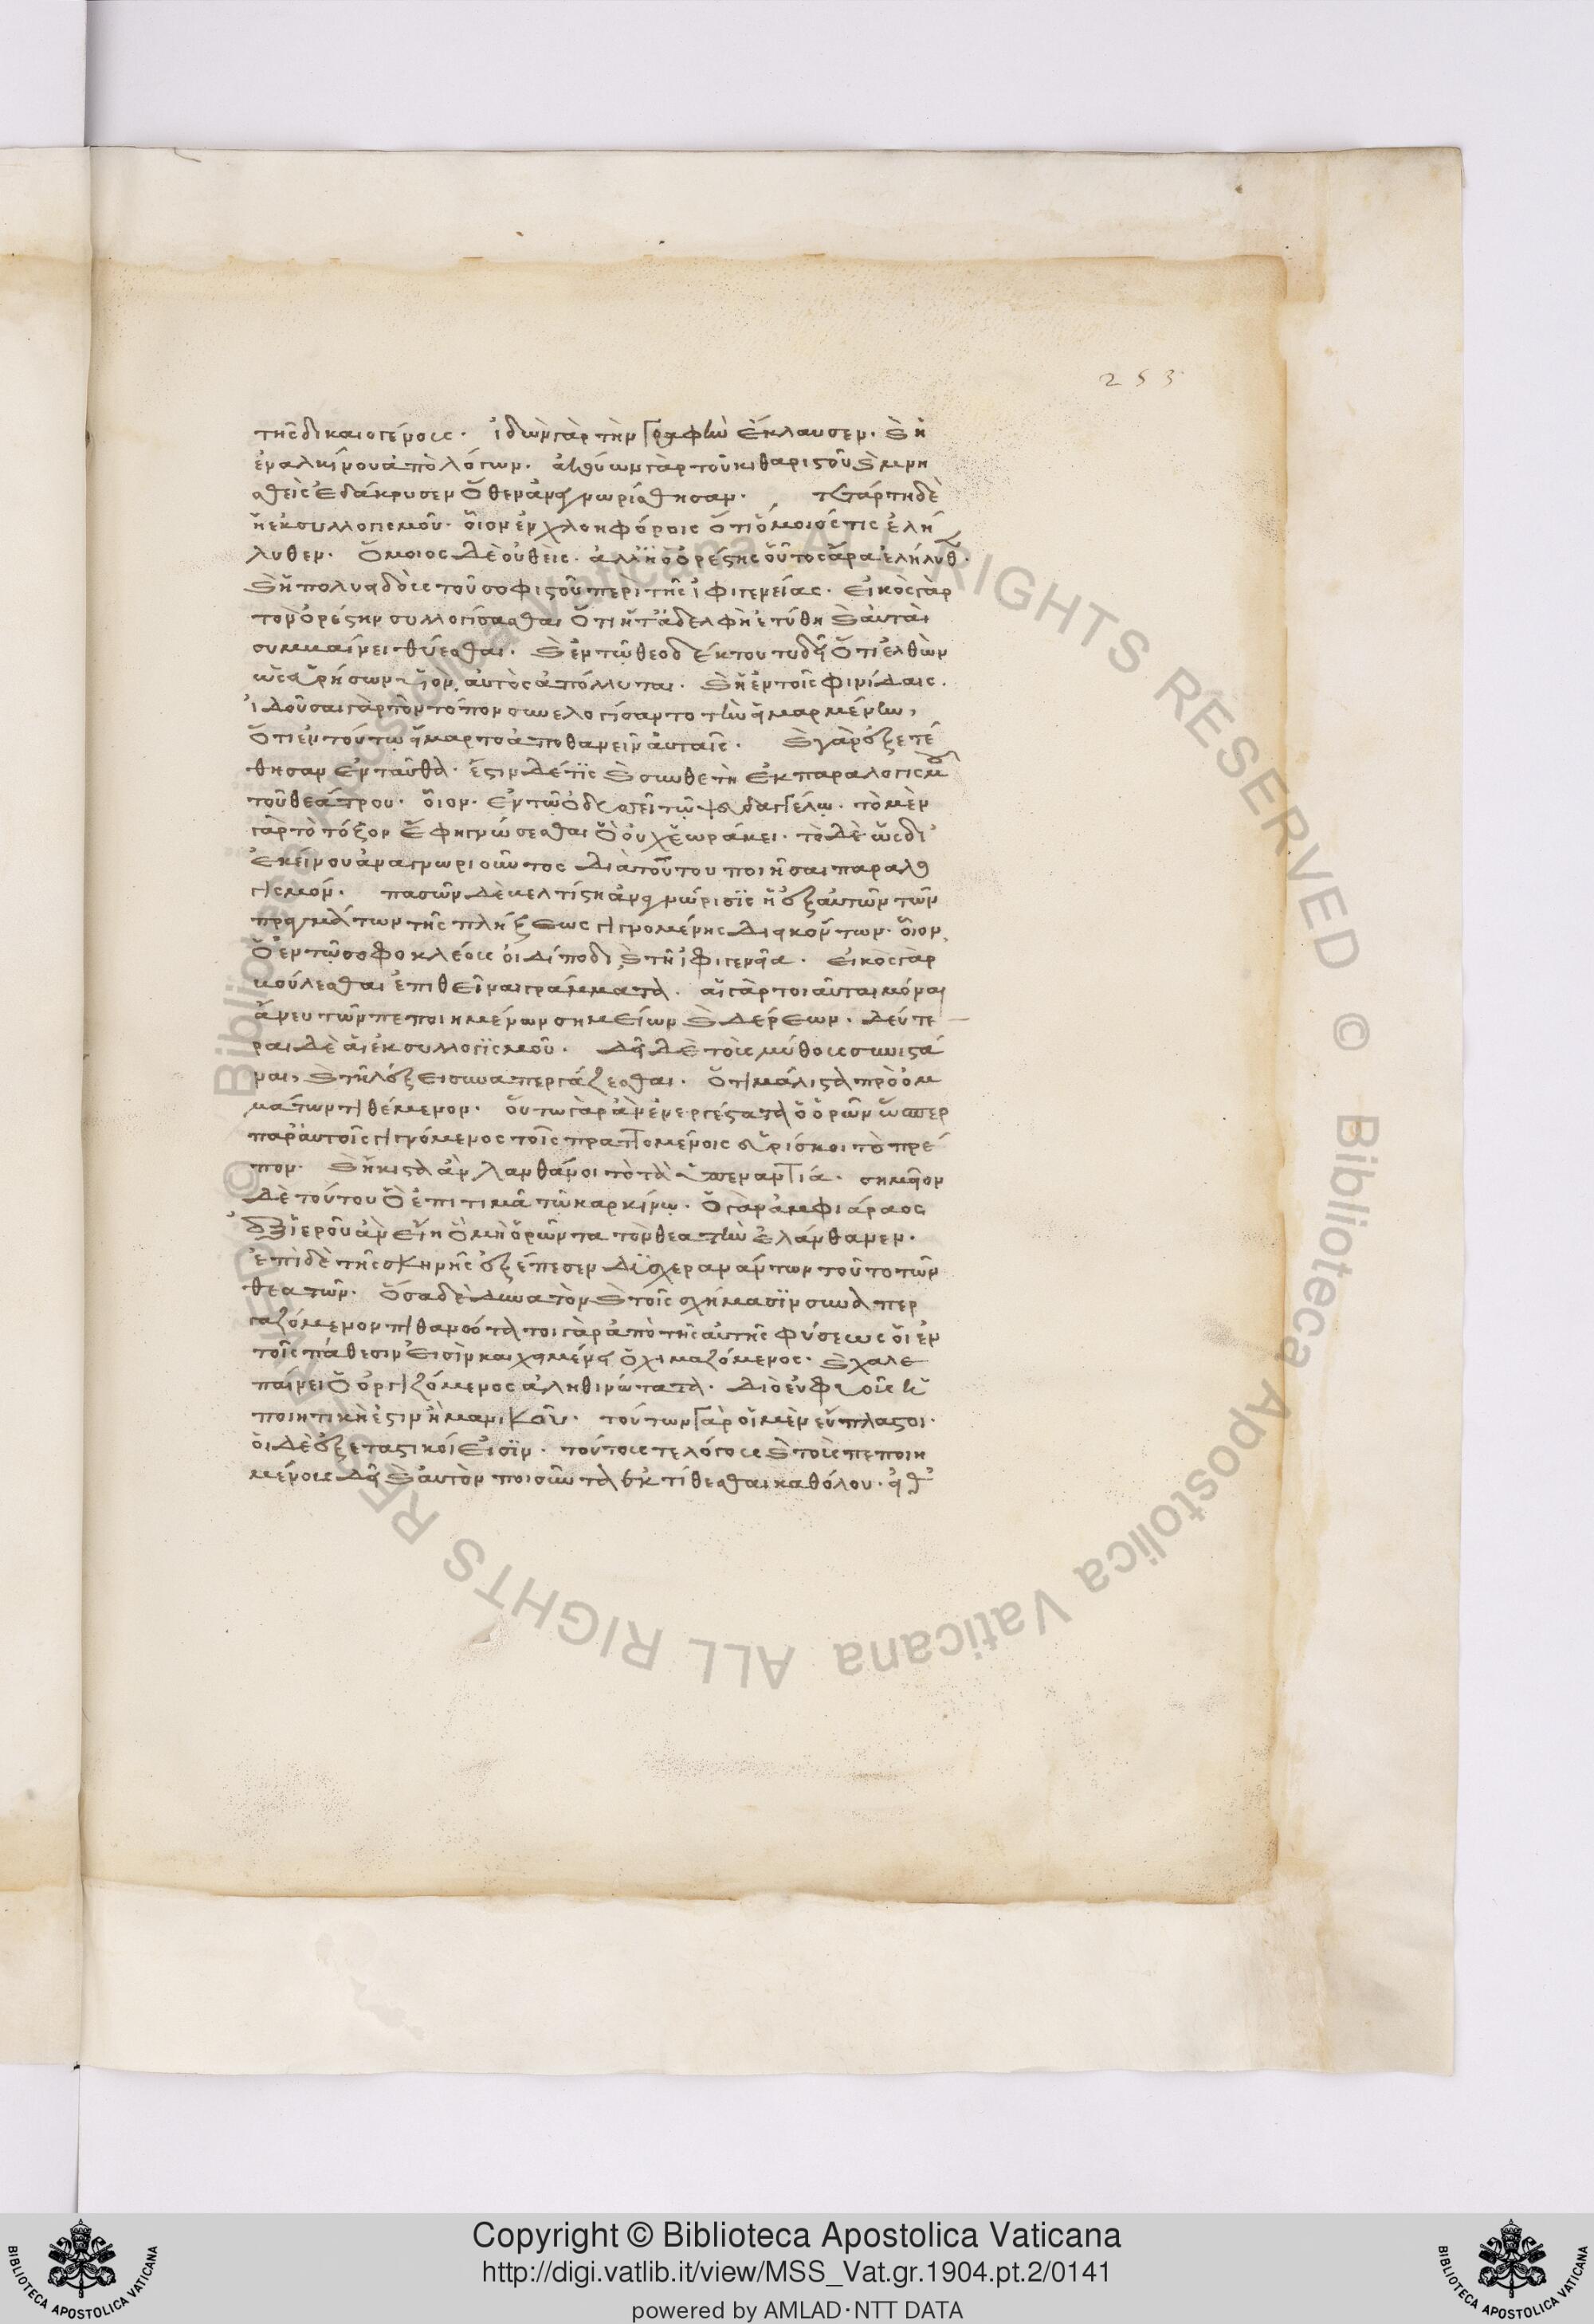 253
τῆς δικαιογένοις· ἰδὼν γὰρ τὴν γραφὴν ἔκλαυσεν. καὶ ἡ
ἐν ἀλκίνου ἀπὸ λόγων. ἀκούων γὰρ τοῦ κιθαριστοῦ καὶ μνη
σθεὶς ἐδάκρυσεν ὅθεν ἀνεγνωρίσθησαν. τετάρτη δὲ
ἡ ἐκ συλλογισμοῦ· οἷον ἐν χλοηφόροις ὅτι ὅμοιός τις ἐλή
λυθεν. ὅμοιος δὲ οὐθείς. ἀλλ' ἢ ὁ ὀρέστης οὗτος ἄρα ἐλήλυθ.
καὶ ἡ πολυείδοις τοῦ σοφιστοῦ περὶ τῆς ἰφιγενείας. εἰκὸς γὰρ
τὸν ὀρέστην συλλογίσασθαι ὅτι ἥ τ' ἀδελφὴ ἐτύθη καὶ αὐτῶι
συμβαίνει θύεσθαι. καὶ ἐν τῷ θεοδέκτου τυδεῖ ὅτι ἐλθὼν
ὡς εὑρήσων υἱὸν αὐτὸς ἀπόλλυται. καὶ ἡ ἐν τοῖς φινίδαις.
ἰδοῦσαι γὰρ τὸν τόπον συνελογίσαντο τὴν εἱμαρμένην,
ὅτι ἐν τούτῳ εἵμαρτο ἀποθανεῖν αὐταῖς. καὶ γὰρ ἐξετέ
θησαν ἐνταῦθα. ἔστιν δέ τις καὶ συνθετὴ ἐκ παραλογισμοῦ
τοῦ θεάτρου. οἷον ἐν τῷ ὀδυσσεῖ τῷ ψευδαγγέλῳ. τὸ μὲν
γὰρ τὸ τόξον ἔφη γνώσεσθαι ὃ οὐχ ἑωράκει. τὸ δὲ ὡς δι'
ἐκείνου ἀναγνωριοῦντος διὰ τούτου ποιῆσαι παραλο
γισμόν. πασῶν δὲ βελτίστη ἀναγνώρισις ἡ ἐξ αὐτῶν τῶν
πραγμάτων τῆς πλήξεως γιγνομένης δι' εἰκότων. οἷον
ὁ ἐν τῷ σοφοκλέους οἰδίποδι καὶ τῇ ἰφιγενείᾳ. εἰκὸς γὰρ
βούλεσθαι ἐπιθεῖναι γράμματα. αἱ γὰρ τοιαῦται μόναι
ἄνευ τῶν πεποιημένων σημείων καὶ δερέων. δεύτε
ραι δὲ αἱ ἐκ συλλογισμοῦ. δεῖ δὲ τοὺς μύθους συνιστά
ναι, καὶ τῇ λέξει συναπεργάζεσθαι. ὅτι μάλιστα πρὸ ὀμ
μάτων τιθέμενον. οὕτω γὰρ ἂν ἐνεργέστατα ὁ ὁρῶν ὥσπερ
παρ' αὐτοῖς γιγνόμενος τοῖς πραττομένοις εὑρίσκοι τὸ πρέ
πον. καὶ ἥκιστα ἂν λανθάνοι τὸ τὰ ὑπεναντία. σημεῖον
δὲ τούτου ὃ ἐπιτιμᾶ τῷ καρκίνῳ. ὃ γὰρ ἀμφιάραος
ἐξ ἱεροῦ ἀνείη ὃ μὴ ὁρῶντα τὸν θεατὴν ἐλάνθανεν.
ἐπὶ δὲ τῆς σκηνῆς ἐξέπεσεν δυσχερανάντων τοῦτο τῶν
θεατῶν. ὅσα δὲ δυνατὸν καὶ τοῖς σχήμασιν συναπερ
γαζόμενον πιθανώτατοι γὰρ ἀπὸ τῆς αὐτῆς φύσεως οἱ ἐν
τοῖς πάθεσιν εἰσὶν καὶ χειμένει ὁ χιμαζόμενος. καὶ χαλε
παίνει ὁ ὀργιζόμενος ἀληθινώτατα. διὸ εὐφυοῦς ἡ
ποιητική ἐστιν ἢ μανικοῦ. τούτων γὰρ οἱ μὲν εὔπλαστοι.
οἱ δὲ ἐξεταστικοί εἰσιν. τούτους τε λόγους καὶ τοὺς πεποιη
μένους δεῖ καὶ αὐτὸν ποιοῦντα ἐκτίθεσθαι καθόλου. εἶθ'
Copyright © Biblioteca Apostolica Vaticana
http://digi.vatlib.it/view/MSS_Vat.gr.1904.pt.2/0141
powered by AMLAD·NTT DATA
BIBLIOTECA APOSTOLICA VATICANA
BIBLIOTECA APOSTOLICA VATICANA
© Biblioteca Apostolica Vaticana ALL RIGHTS RESERVED © Biblioteca Apostolica Vaticana ALL RIGHTS RESERVED